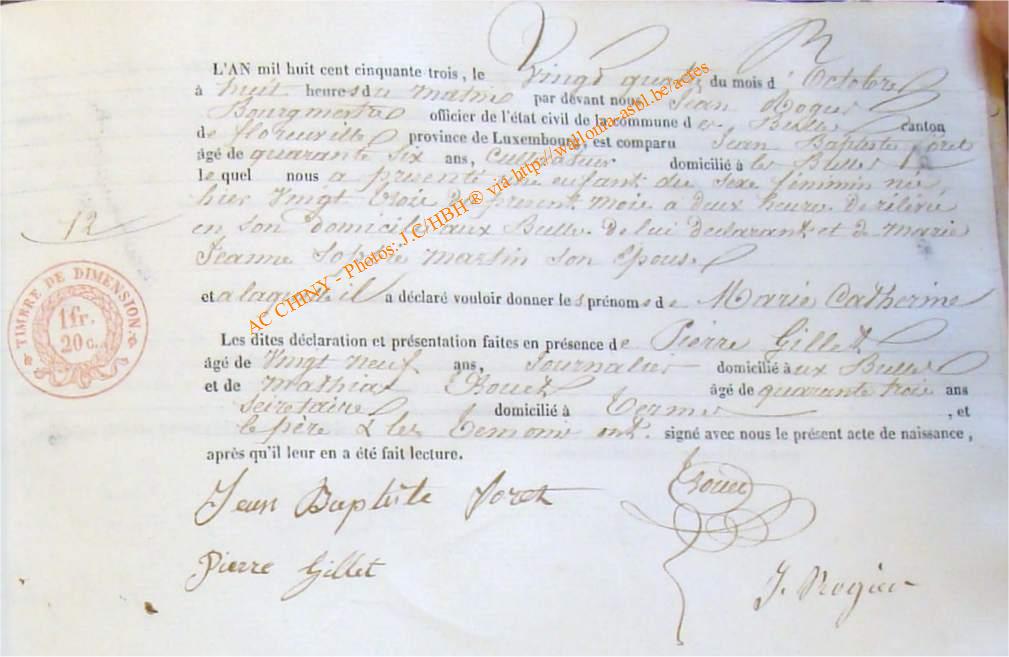 L'AN mil huit cent cinquante trois, le Vingt quatre du mois d'Octobre
à huit heures du matin par devant nous Jean Rogier
Bourgmestre officier de l'état civil de la commune de Bulles canton
de florenville province de Luxembourg, est comparu Jean Baptiste Foret
âgé de quarante six ans, Cultivateur domicilié à les Bulles
le quel nous a présenté une enfant du sexe féminin née,
hier Vingt trois du présent mois à deux heures de rélévée
en son domicile aux Bulles de lui déclarant et de Marie
Jeanne martin son Epouse
et a laquelle il a déclaré vouloir donner les prénoms de Marie Catherine
12
TIMBRE DE DIMENSION.
1 fr.
20 c.
Les dites déclaration et présentation faites en présence de Pierre Gillet
âgé de Vingt neuf ans, Journalier domicilié aux Bulles
et de Mathias âgé de quarante trois ans
Secretaire domicilié à Termes, et
le père & les temoins ont signé avec nous le présent acte de naissance,
après qu'il leur en a été fait lecture.
Jean Baptiste Foret
Pierre Gillet
J. Rogier
AC CHINY - Photos: J.C/HBH ® via http://wallonia-asbl.be/actes